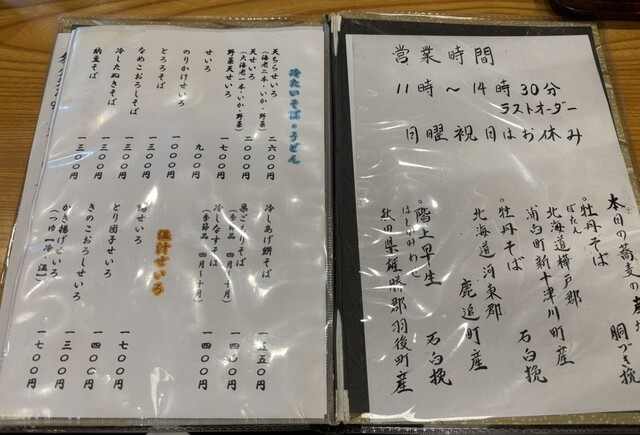 営業時間
11時〜14時30分
ラストオーダー
日曜祝日はお休み
本日の蕎麦の産
牡丹そば 胴づき挽
ぼたん
北海道樺戸郡
浦臼町新十津川町産
牡丹そば 石臼挽
北海道河東郡
鹿追町産
階上早生 石臼挽
はしかみわせ
秋田県雄勝郡羽後町産
冷たいそば・うどん
天ちらせいろ 二六〇〇円
(海老二本・いか・野菜)
天せいろ 二〇〇〇円
(大海老一本・いか・野菜)
野菜天せいろ 一七〇〇円
せいろ 九〇〇円
のりかけせいろ 一〇〇〇円
とろろそば 一三〇〇円
なめこおろしそば 一三〇〇円
冷したぬきそば 一三〇〇円
納豆そば 一三〇〇円
冷しあげ餅そば 一五五〇円
巣ごもりそば 一四〇〇円
(季節品 四月〜十月)
冷しなすそば 一四〇〇円
(季節品 四月〜十月)
温汁せいろ
鴨せいろ 一七〇〇円
とり団子せいろ 一四〇〇円
きのこおろしせいろ 一三〇〇円
かき揚げせいろ 一七〇〇円
(つゆ「冷」「温」)